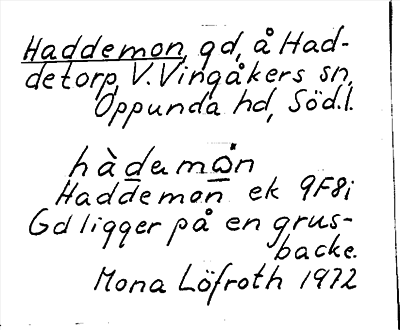 Haddemon, gd, å Had-
detorp, V. Vingåkers sn,
Oppunda hd, Söd.l.
hàdemo̊n
Haddemon ek 9F8i
Gd ligger på en grus-
backe.
Mona Löfroth 1972